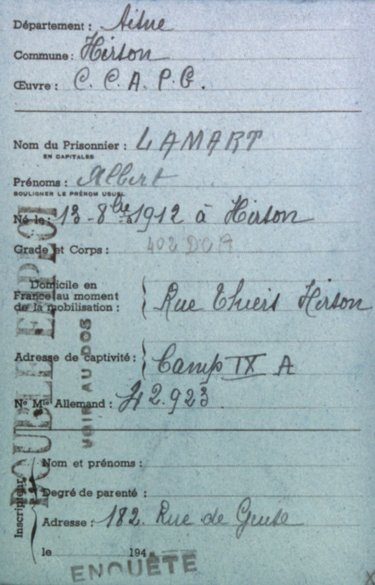 Département : Aisne
Commune : Hirson
Œuvre : C. C. A. P. G.
Nom du Prisonnier : LAMART
EN CAPITALES
Prénoms : Albert
SOULIGNER LE PRÉNOM USUEL
Né le : 13-8bre 1912 à Hirson
Grade et Corps : 402 DCA
Domicile en
France au moment
de la mobilisation :
Rue Thiers Hirson
Adresse de captivité : Camp IX A
No Mle Allemand : 42.923
DOUBLE EMPLOI
VOIR AU DOS
Inscripteur
Nom et prénoms :
Degré de parenté :
Adresse : 182. Rue de Guise
le 194
ENQUÊTE